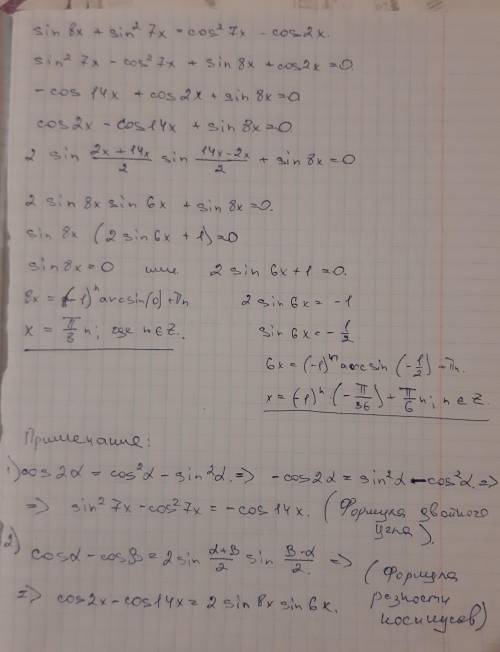 sin 8x + sin² 7x = cos² 7x - cos 2x.
sin² 7x - cos² 7x + sin 8x + cos 2x = 0.
-cos 14x + cos 2x + sin 8x = 0
cos 2x - cos 14x + sin 8x = 0
2 sin (2x + 14x)/2 sin (14x - 2x)/2 + sin 8x = 0
2 sin 8x sin 6x + sin 8x = 0.
sin 8x (2 sin 6x + 1) = 0
sin 8x = 0 или 2 sin 6x + 1 = 0.
8x = (-1)ⁿ arcsin(0) + πn 2 sin 6x = -1
x = π/8 n; где n ∈ Z. sin 6x = - 1/2
6x = (-1)ⁿ arcsin (-1/2) + πn.
x = (-1)ⁿ · (-π/36) + π/6 n; n ∈ Z.
Примечание:
1) cos 2α = cos² α - sin² α. => -cos 2α = sin² α - cos² α. =>
=> sin² 7x - cos² 7x = -cos 14x. (Формула двойного
угла).
2) cos α - cos β = 2 sin (α+β)/2 sin (β-α)/2. => (Формула
=> cos 2x - cos 14x = 2 sin 8x sin 6x. разности
косинусов)